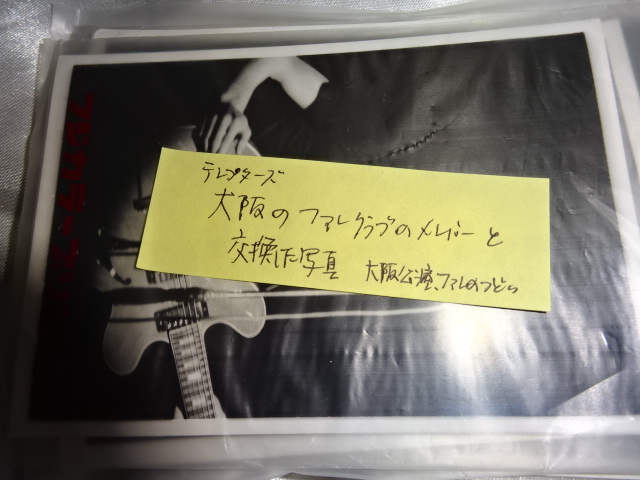 テンプターズ
大阪のファンクラブのメンバーと
交換した写真 大阪公演、ファンのつどい